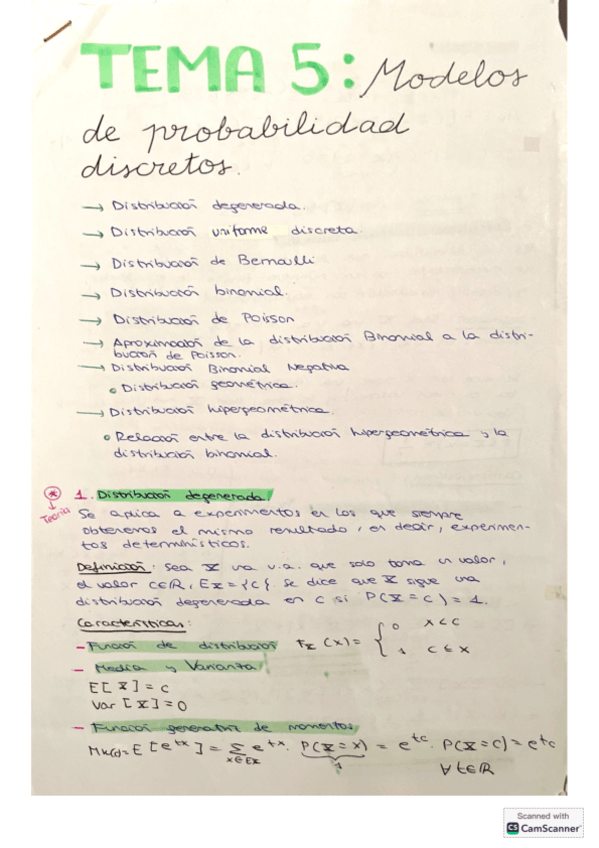 TEMA 5: Modelos
de probabilidad
discretos.
→ Distribución degenerada.
→ Distribución uniforme discreta.
→ Distribución de Bernoulli
→ Distribución binomial.
→ Distribución de Poisson
→ Aproximación de la distribución Binomial a la distri-
bución de Poisson.
→ Distribución Binomial Negativa
∘ Distribución geométrica.
→ Distribución hipergeométrica.
∘ Relación entre la distribución hipergeométrica y la
distribución binomial.
* 1. Distribución degenerada
↓ Teoría
Se aplica a experimentos en los que siempre
obtenemos el mismo resultado, es decir, experimen-
tos determinísticos.
Definición: Sea X una v.a. que solo toma un valor,
el valor c∈ℝ, Ex={c}. Se dice que X sigue una
distribución degenerada en c si P(X=c)=1.
Características:
- Función de distribución Fx(x)= { 0 x<c
1 c≤x
- Media y Varianza
E[X]=c
Var[X]=0
- Función generatriz de momentos
Mx(t)=E[e^tx]= Σ x∈Ex e^tx · P(X=x) = e^tc · P(X=c) = e^tc
1
∀t∈ℝ
Scanned with
CS CamScanner